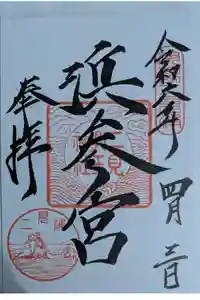 令和六年
四月三日
浜参宮
奉拝